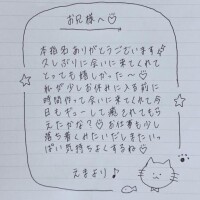 お兄様へ♡
本指名ありがとうございます
久しぶりに会いに来てくれて
とっても嬉しかった〜♡
私が少しお休みに入る前に
時間作って会いに来てくれて今
日もギューして癒されてもら
えたかな?♡お仕事も少し
落ち着くれたいだしまたいっ
ぱい気持ちよくするね♡
えまより♪